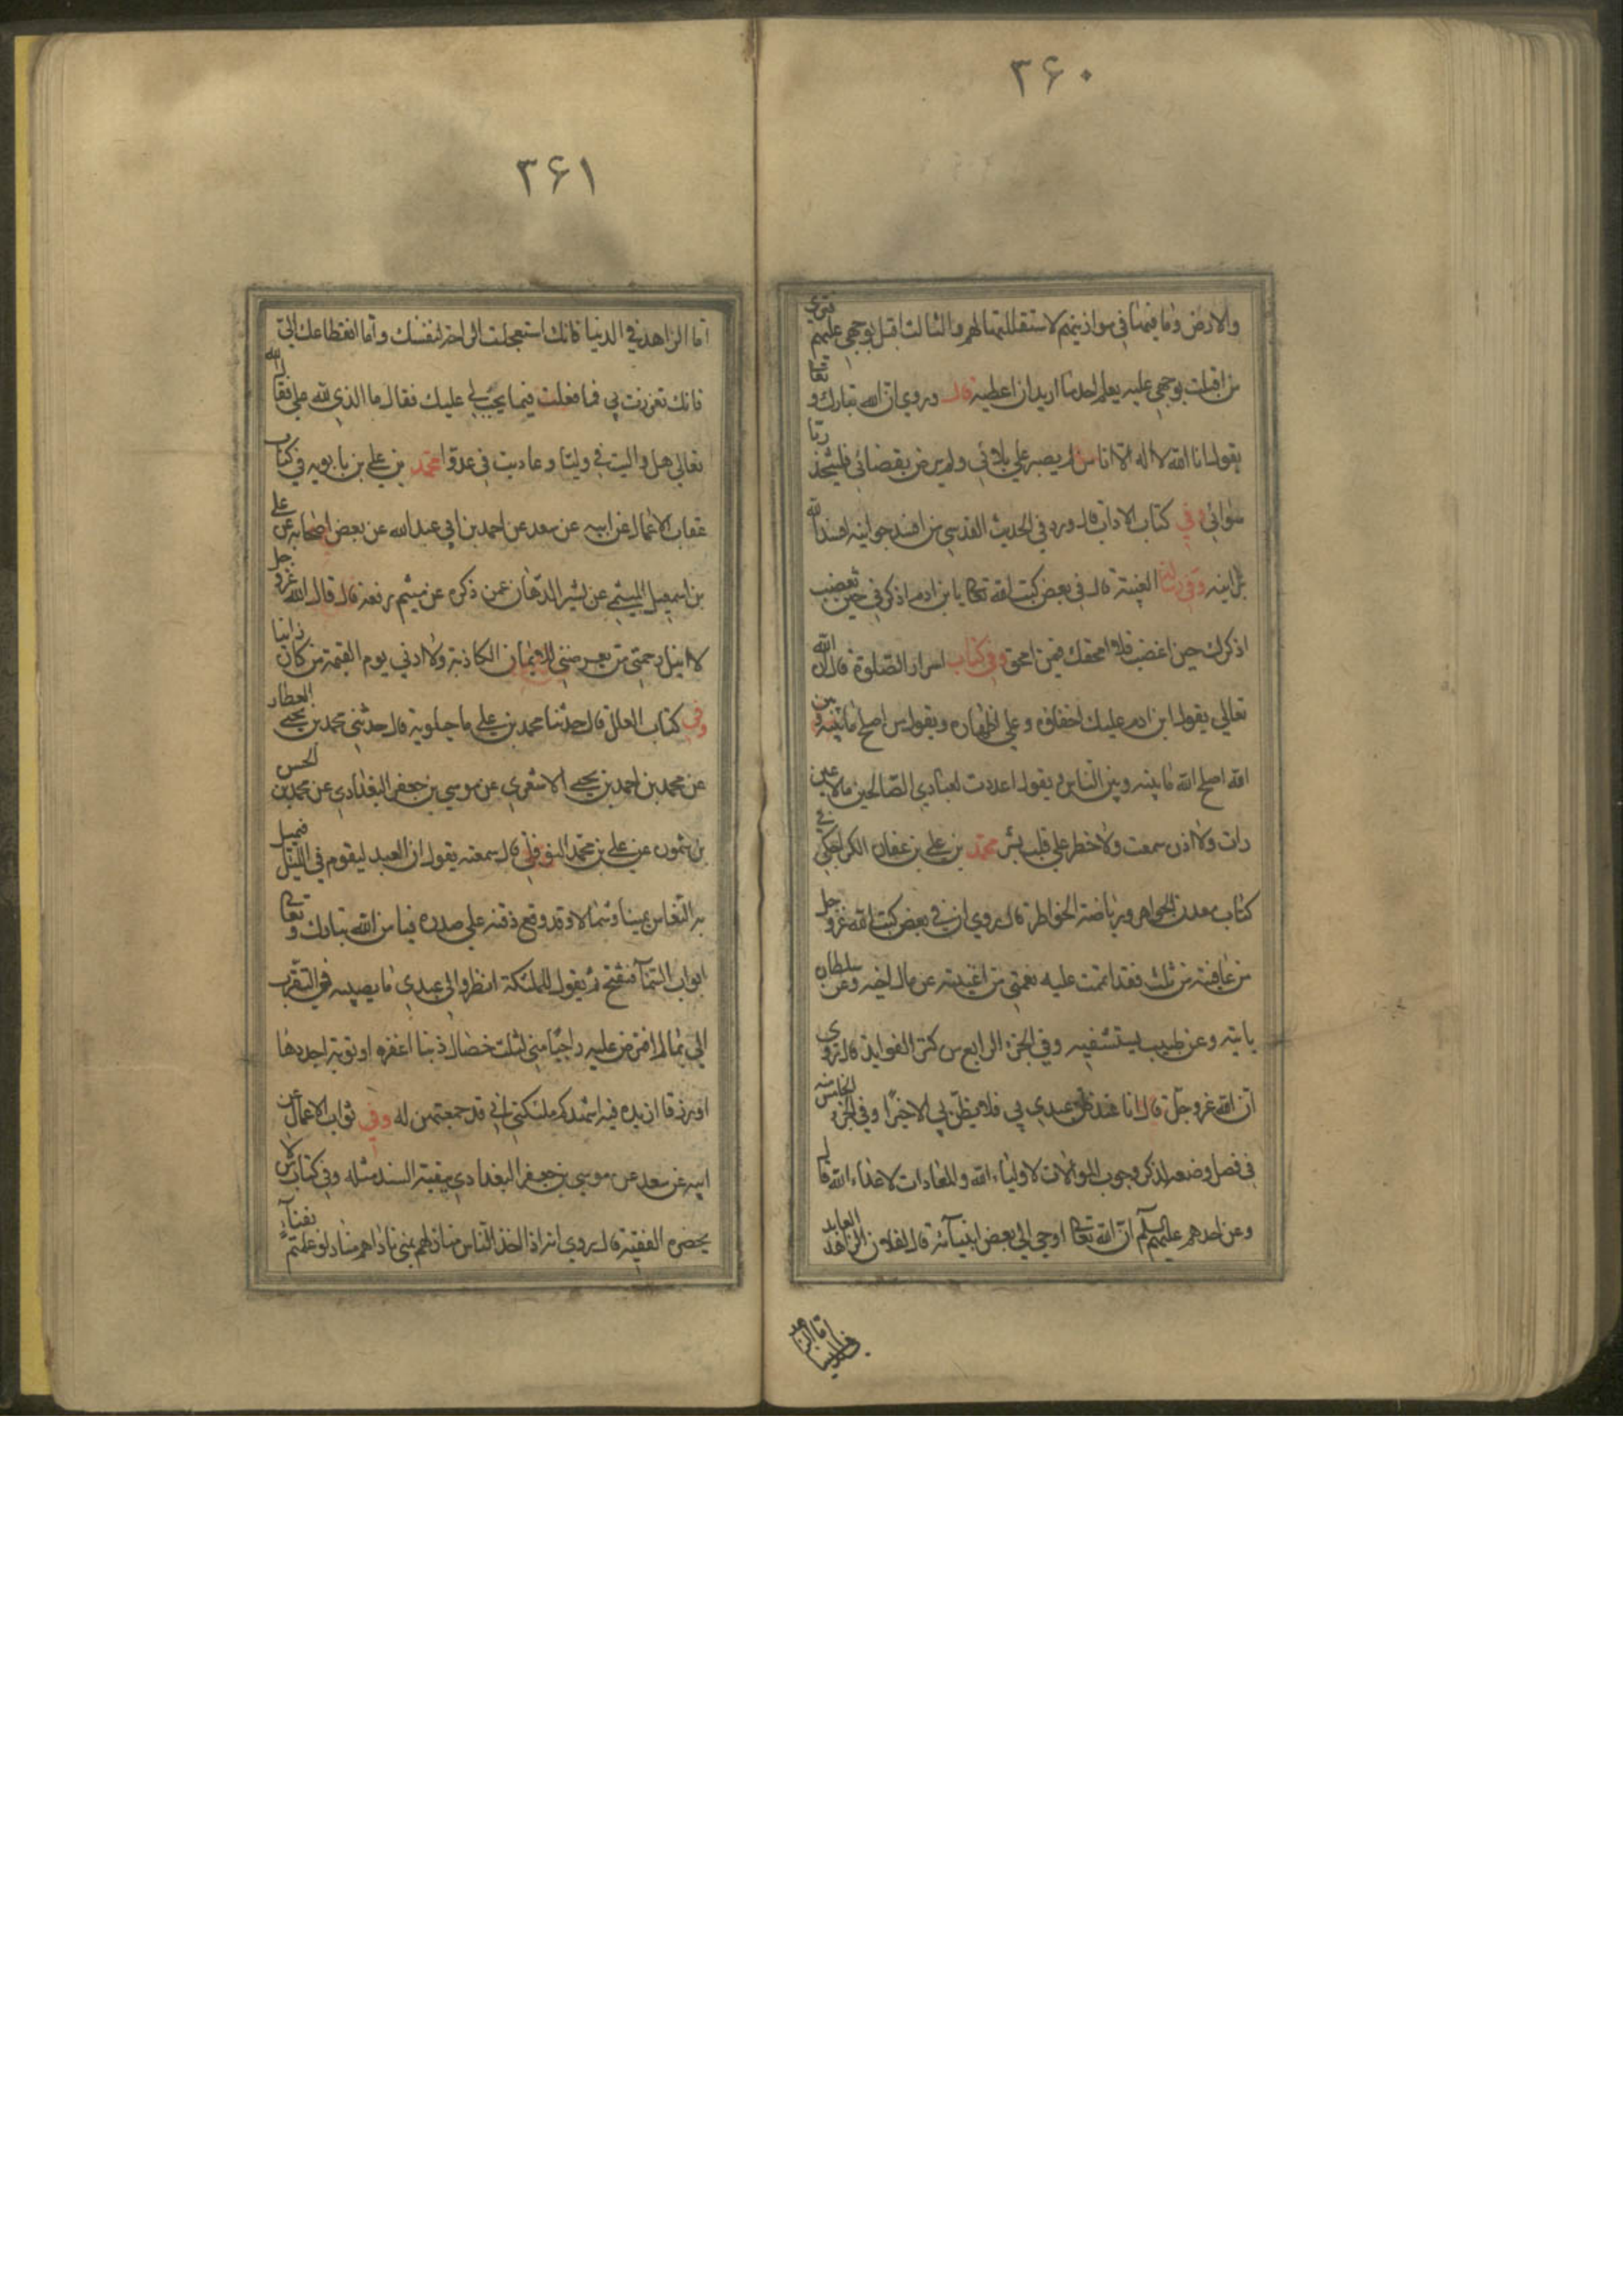 ۳۶۰
والارض وما فيهما في موازينهم لاستقللتها لهم والثالث اقبل بوجهي عليهم فترى
من اقبلت بوجهي عليه يعلم احد ما اريد ان اعطيه قال وروي ان الله تبارك وتعا
يقول انا الله لا اله الا انا من لم يصبر علي بلائي ولم يرض بقضائي فليتخذ ربا
سوائي وفي كتاب الاداب قال ورد في الحديث القدسي من افسد جوانيه افسد الله
برانيه وفي الغيبة قال في بعض كتب الله تعا يا بن ادم اذكرني حين تغضب
اذكرك حين اغضب فلا امحقك فيمن امحق وفي كتاب اسرار الصلوة قال الله
تعالي يقول ابن ادم عليك اخفاؤه وعلي اظهاره ويقول من اصلح ما بينه وبين
الله اصلح الله ما بينه وبين الناس ويقول اعددت لعبادي الصالحين ما لا عين
رات ولا اذن سمعت ولا خطر علي قلب بشر محمد بن علي بن عفان الكراجكي في
كتاب معدن الجواهر ورياضة الخواطر قال روي ان في بعض كتب الله عز وجل
من عافيته من ثلث فقد اتممت عليه نعمتي من اغنيته عن مال اخيه وعن سلطان
ياتيه وعن طبيب يستشفيه وفي الجزء الرابع من كنز الفوايد قال روي
ان الله عز وجل قال انا عند ظن عبدي بي فلا يظن بي الا خيرا وفي الجزء الخامس منه
في فصل وضعه لذكر وجوب الموالات لاولياء الله والمعادات لاعداء الله قال
وعن احدهم عليهم السلم ان الله تعا اوحي الي بعض انبيائه قل لفلان الزاهد العابد
اما الزاهد في الدنيا
۳۶۱
اما الزاهد في الدنيا فانك استعجلت الراحة لنفسك واما انقطاعك الي
فانك تعززت بي فما فعلت فيما يجب لي عليك فقال ما الذي لله علي فقال الله
تعالي هل واليت في وليا وعاديت في عدوا محمد بن علي بن بابويه في كتاب
عقاب الاعمال عن ابيه عن سعد عن احمد بن ابي عبد الله عن بعض اصحابه عن علي
بن اسمعيل الميثمي عن بشير الدهان عمن ذكره عن ميثم رفعه قال قال الله عز وجل
لا انيل رحمتي من يعرضني للايمان الكاذبة ولا ادني يوم القيمة من كان زانيا
وفي كتاب العلل قال حدثنا محمد بن علي ماجيلويه قال حدثني محمد بن يحيي العطار
عن محمد بن احمد بن يحيي الاشعري عن موسي بن جعفر البغدادي عن محمد بن الحسن
بن شمون عن علي بن محمد النوفلي قال سمعته يقول ان العبد ليقوم في الليل فيميل
به النعاس يمينا وشمالا وقد وقع ذقنه علي صدره فيامر الله تبارك وتعا
ابواب السماء فتفتح ثم يقول للملئكة انظروا الي عبدي ما يصيبه في التقرب
الي بما لم افترض عليه راجيا مني لثلث خصال ذنبا اغفره او توبة اجددها
او رزقا ازيده فيه اشهدكم ملئكتي اني قد جمعتهن له وفي ثواب الاعمال عن
ابيه عن سعد عن موسي بن جعفر البغدادي ببقية السند مثله وفي كتاب من لا
يحضره الفقيه قال روي انه اذا اخذ الناس منازلهم بمني ناداهم مناد لو علمتم بفناء